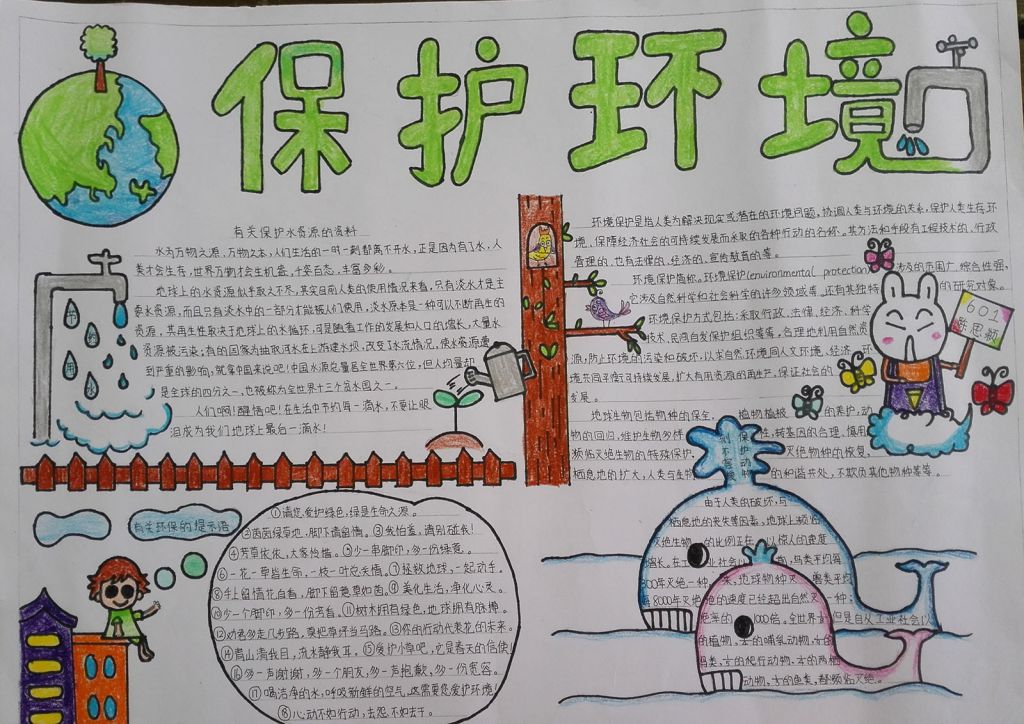 保护环境
有关保护水资源的资料
水为万物之源,万物之本,人们生活的一时一刻都离不开水,正是因为有了水,人
类才会生存,世界万物才会生机盎,千姿百态,丰富多彩。
地球上的水资源似乎取之不尽,其实目前人类的使用情况来看,只有淡水才是主
要水资源,而且只有淡水中的一部分才能被人们使用,淡水原本是一种可以不断再生的
资源,其再生性取决于地球上的水循环,可是随着工作的发展和人口的增长,大量水
资源被污染;有的国家为抽取河水在上游建水坝,改变了水流情况,使水资源遭
到严重的影响,就拿中国来说吧!中国水资源总量居全世界第六位,但人均量却
是全球的四分之一,也被称为全世界十三个贫水国之一。
人们啊!醒悟吧!在生活中节约每一滴水,不要让眼
泪成为我们地球上最后一滴水!
节
约
用
水
环境保护是指人类为解决现实或潜在的环境问题,协调人类与环境的关系,保护人类生存环
境、保障经济社会的可持续发展而采取的各种行动的名称。其方法和手段有工程技术的、行政
管理的,也有法律的、经济的、宣传教育的等。
环境保护简称。环境保护(environmental protection)涉及的范围广,综合性强,
它涉及自然科学和社会科学的许多领域等,还有其独特的研究对象。
环境保护方式包括:采取行政、法律、经济、科学
技术、民间自发保护组织等等,合理地利用自然资
源,防止环境的污染和破坏,以求自然环境同人文环境、经济环
境共同平衡可持续发展,扩大有用资源的再生产,保证社会的
发展。
601
陈思颖
地球生物包括物种的保全,植物植被的养护,动
物的回归,维护生物多样性,转基因的合理、慎用
濒临灭绝生物的特殊保护,灭绝物种的恢复,
栖息地的扩大,人类与生物的和谐共处,不欺负其他物种等等。
保护动物
由于人类的破坏,与
栖息地的丧失等因素,地球上濒临
灭绝生物的比例正在以惊人的速度
有关环保的提示语
①请您爱护绿色,绿是生命之源。
②茵茵绿草地,脚下请留情。③我怕羞,请别碰我!
④芳草依依,大家怜惜。⑤少一串脚印,多一份绿意。
⑥一花一草皆生命,一枝一叶总关情。⑦拯救地球,一起动手。
⑧手上留情花自香,脚下留意草如茵。⑨美化生活,净化心灵。
⑩少一个脚印,多一份芳香。⑪树木拥有绿色,地球拥有脉搏。
⑫劝君多走几步路,莫把草坪当马路。⑬你的行动代表花的未来。
⑭青山清我目,流水静我耳。⑮爱护小草吧,它是春天的信使!
⑯多一声谢谢,多一个朋友,多一声抱歉,多一份宽容。
⑰喝洁净的水,呼吸新鲜的空气,这需要您爱护环境!
⑱心动不如行动,去怨不如去干。